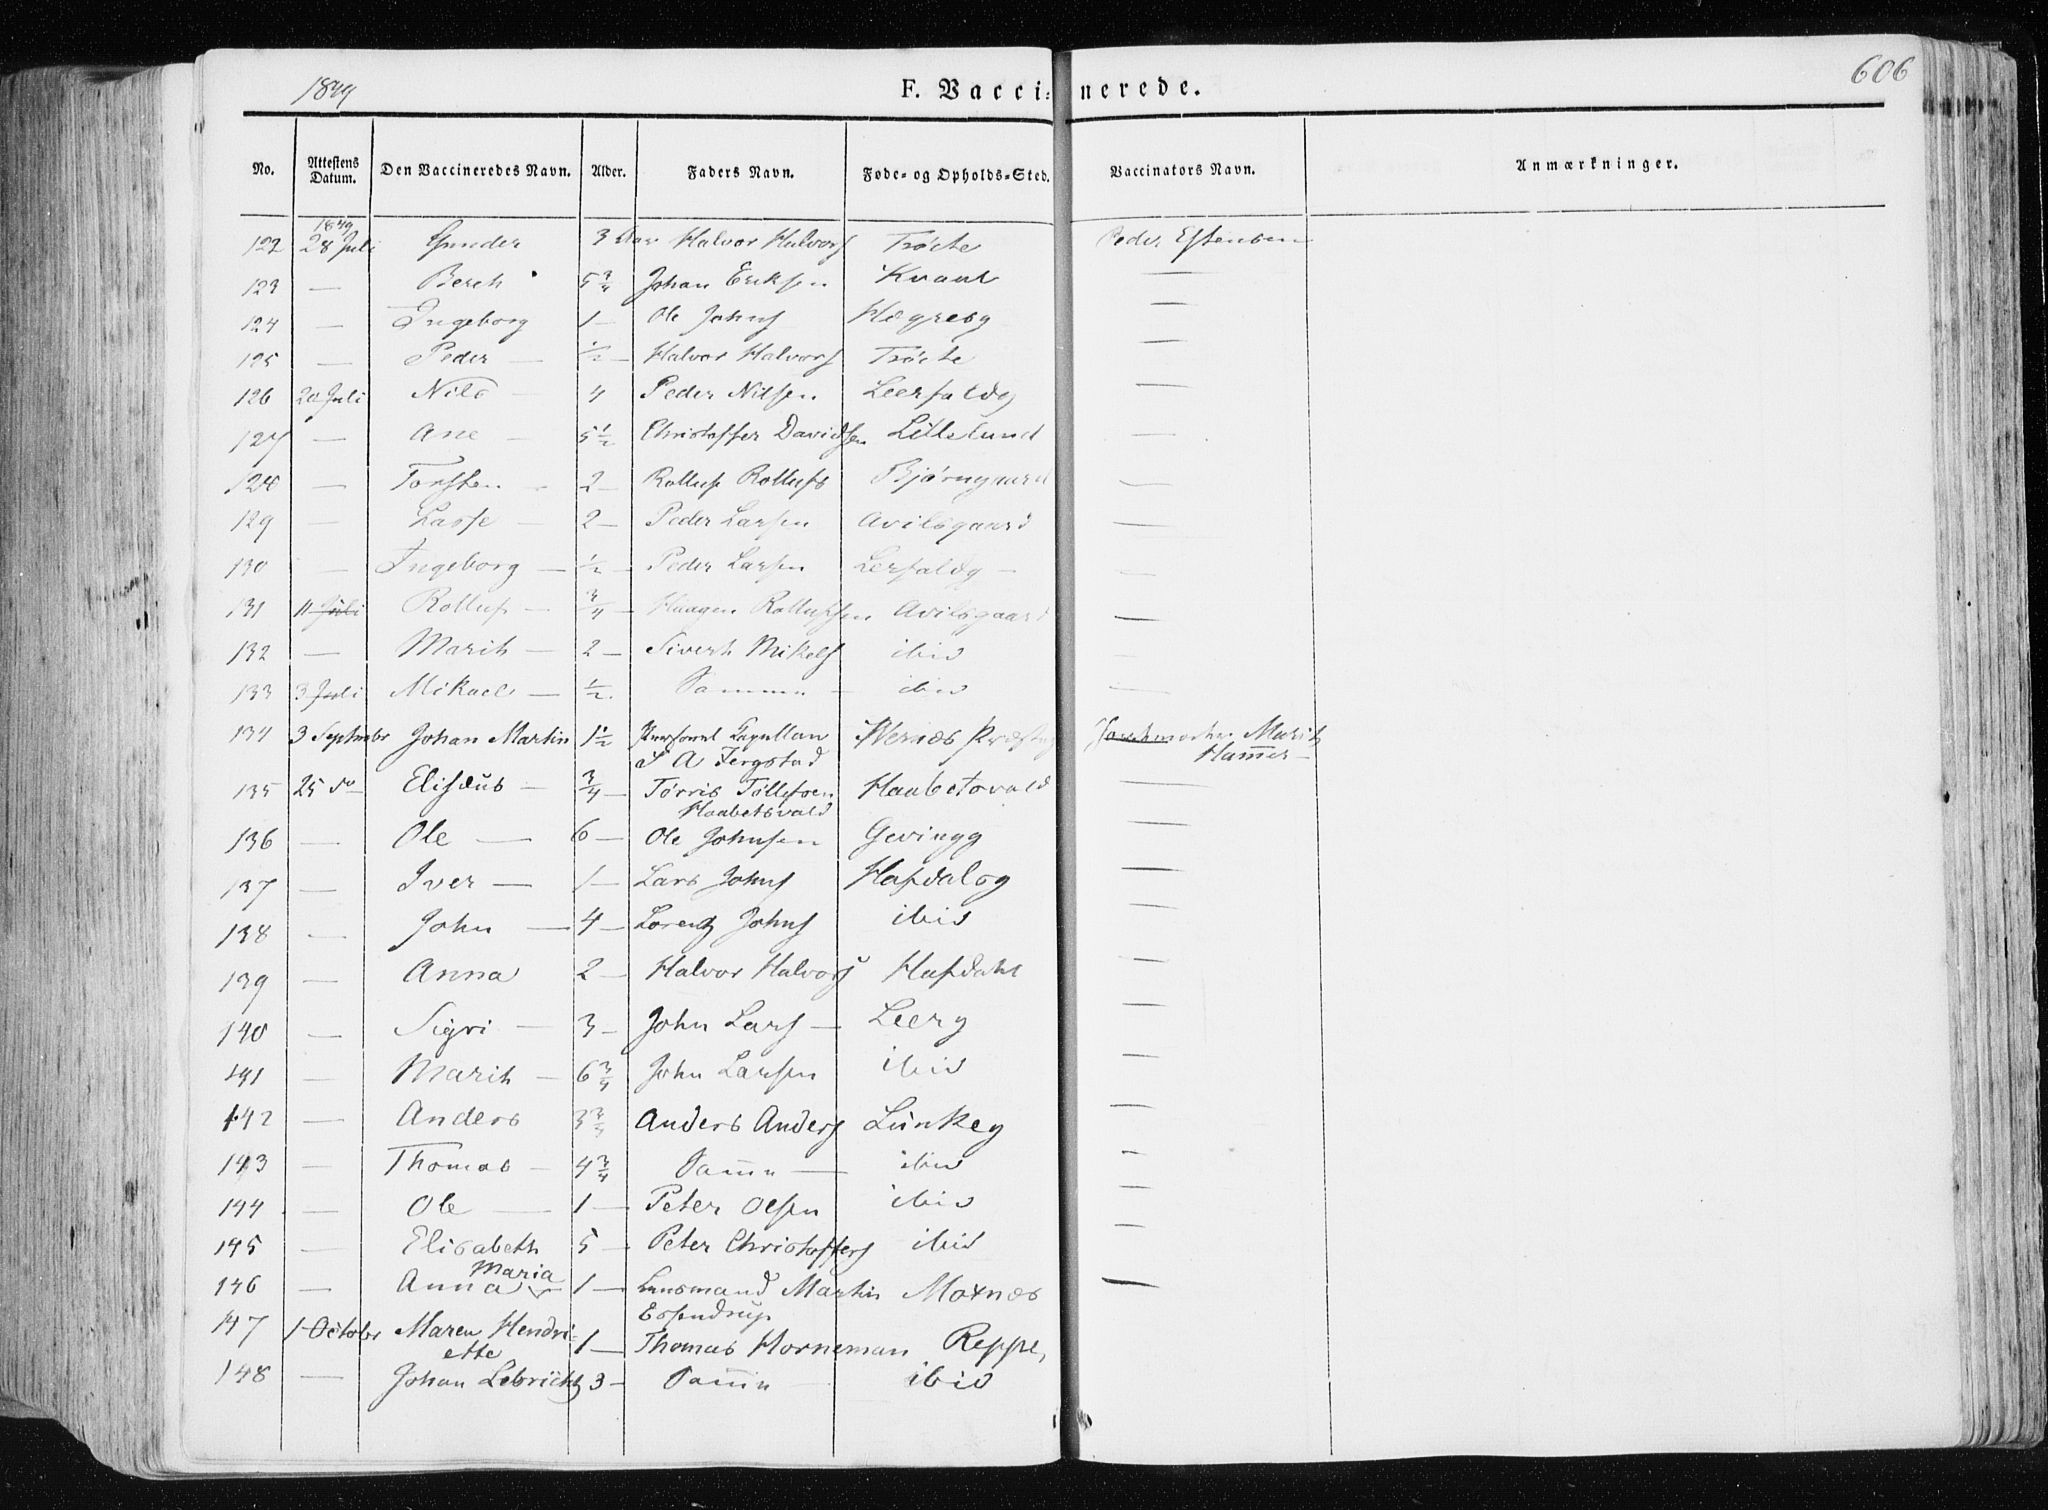 1849
F. Vaccinerede.
606
No. Attestens Datum. Den Vaccineredes Navn. Alder. Faders Navn. Føde- og Opholds-Sted. Vaccinators Navn. Anmærkninger.
1849
122 28 Juli Gunder 3 Halvor Halvors Trøite Peder Estensen
123 — Bereth 5 3/4 Johan Eriksen Kvaal —
124 — Ingeborg 1 — Ole Johns Hægreby —
125 — Peder — 1/2 — Halvor Halvors Trøite —
126 20 Juli Nils — 4 Peder Nilsen Leerfaldg —
127 — Ane — 5 1/2 Christoffer Davidsen Lillelund —
128 — Torsten — 2 — Rolluf Rollufs Bjørngaard —
129 — Lasse — 2 — Peder Larsen Avilsgaard —
130 — Ingeborg — 1/2 — Peder Larsen Lerfaldg — —
131 11 Juli Rolluf — 3/4 — Haagen Rollufsen Avilsgaard —
132 — Marith — 2 — Sivert Mikels ibid —
133 3 Juli Mikael — 1/2 Samme — ibid —
134 3 September Johan Martin 1 1/2 Personel Capellan Wernæs Marith
S A Fergstad Hamer —
135 25 do Elisæus — 3/4 Tørris Tøllefsen Haabetsvald —
Haabetsvald
136 — Ole — 6 — Ole Johnsen Gevingg —
137 — Iver — 1 — Lars Johns Hafdalog —
138 — John — 4 — Lorentz Johns ibid —
139 — Anna 2 — Halvor Halvors Hafdahl —
140 — Sigri — 3 — John Lars — Leerg —
141 — Marith — 6 3/4 John Larsen ibid —
142 — Anders 3 3/4 Anders Anders Lunkeg —
143 — Thomas — 4 3/4 Samme — ibid —
144 — Ole — 1 — Peter Olsen ibid —
145 — Elisabeth 5 — Peter Christoffers ibid —
Maria
146 — Anna 1 — Lensmand Martin Moxnæs —
Essendrup
147 1 October Maren Hendri- 1 — Thomas Horneman Reppe,
ette
148 — Johan Lebricht 3 — Samme — ibid